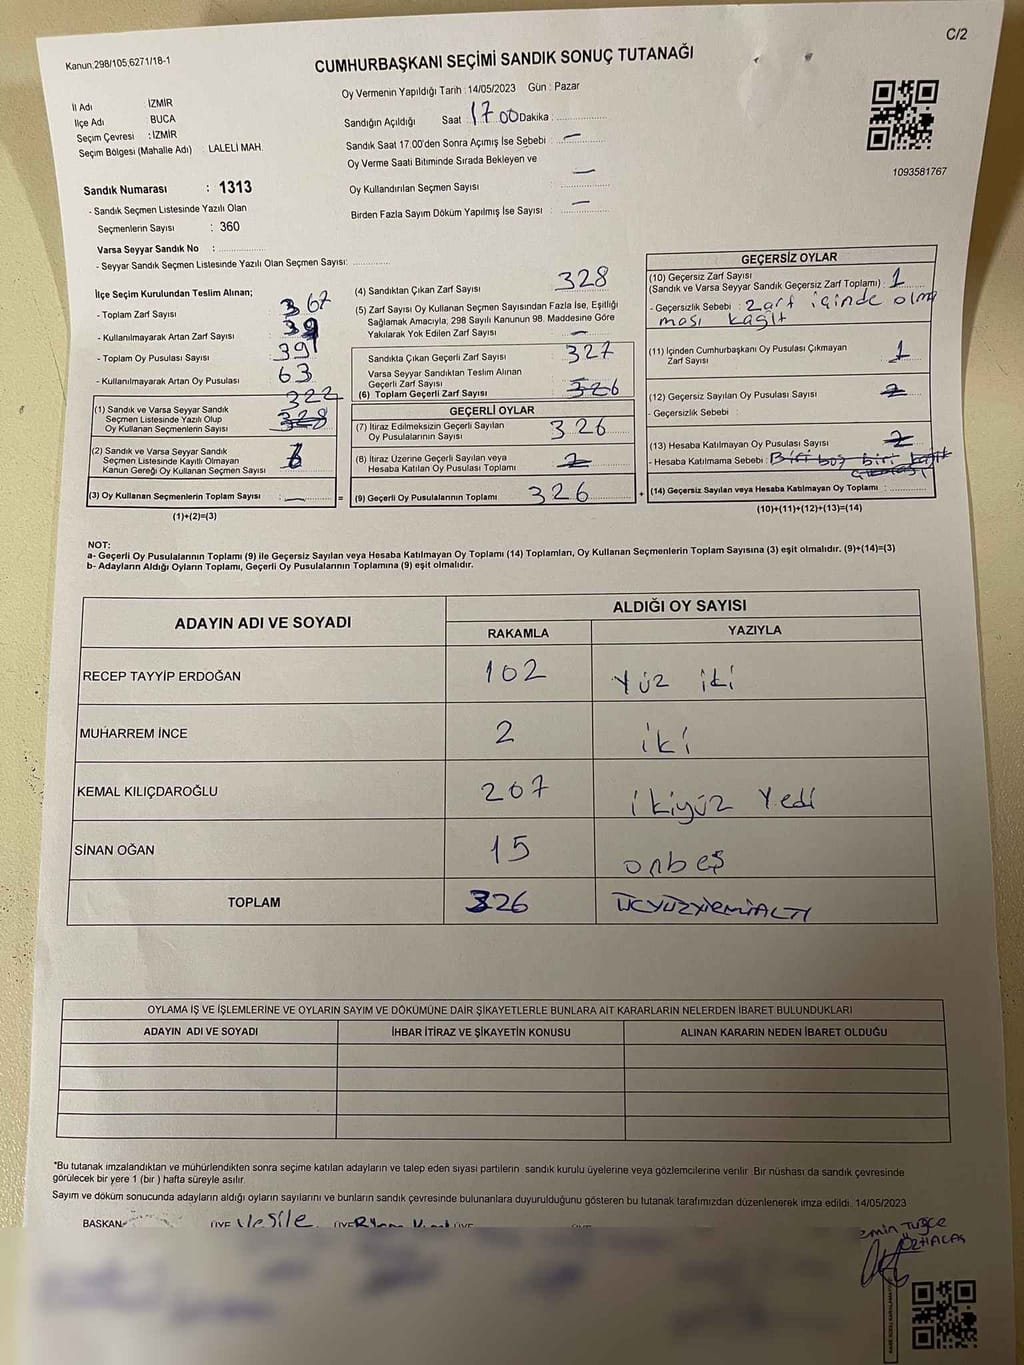 C/2
Kanun:298/105,6271/18-1
CUMHURBAŞKANI SEÇİMİ SANDIK SONUÇ TUTANAĞI
Oy Vermenin Yapıldığı Tarih : 14/05/2023 Gün : Pazar
İl Adı İZMİR
İlçe Adı BUCA
Seçim Çevresi : İZMİR
Seçim Bölgesi (Mahalle Adı) : LALELİ MAH.
Sandığın Açıldığı Saat : 17.00 Dakika :
Sandık Saat 17.00'den Sonra Açımış İse Sebebi : —
Oy Verme Saati Bitiminde Sırada Bekleyen ve
Oy Kullandırılan Seçmen Sayısı : —
Birden Fazla Sayım Döküm Yapılmış İse Sayısı : —
1093581767
Sandık Numarası : 1313
- Sandık Seçmen Listesinde Yazılı Olan
Seçmenlerin Sayısı : 360
Varsa Seyyar Sandık No :
- Seyyar Sandık Seçmen Listesinde Yazılı Olan Seçmen Sayısı:
İlçe Seçim Kurulundan Teslim Alınan;
- Toplam Zarf Sayısı : 367
- Kullanılmayarak Artan Zarf Sayısı : 39
- Toplam Oy Pusulası Sayısı : 391
- Kullanılmayarak Artan Oy Pusulası : 63
322
(1) Sandık ve Varsa Seyyar Sandık
Seçmen Listesinde Yazılı Olup
Oy Kullanan Seçmenlerin Sayısı : 328
(2) Sandık ve Varsa Seyyar Sandık
Seçmen Listesinde Kayıtlı Olmayan
Kanun Gereği Oy Kullanan Seçmen Sayısı : 6
(3) Oy Kullanan Seçmenlerin Toplam Sayısı : — =
(1)+(2)=(3)
(4) Sandıktan Çıkan Zarf Sayısı : 328
(5) Zarf Sayısı Oy Kullanan Seçmen Sayısından Fazla İse, Eşitliği
Sağlamak Amacıyla; 298 Sayılı Kanunun 98. Maddesine Göre
Yakılarak Yok Edilen Zarf Sayısı : —
Sandıkta Çıkan Geçerli Zarf Sayısı : 327
Varsa Seyyar Sandıktan Teslim Alınan
Geçerli Zarf Sayısı
(6) Toplam Geçerli Zarf Sayısı : 326
GEÇERLİ OYLAR
(7) İtiraz Edilmeksizin Geçerli Sayılan
Oy Pusulalarının Sayısı : 326
(8) İtiraz Üzerine Geçerli Sayılan veya
Hesaba Katılan Oy Pusulası Toplamı : 2
(9) Geçerli Oy Pusulalarının Toplamı : 326 +
GEÇERSİZ OYLAR
(10) Geçersiz Zarf Sayısı
(Sandık ve Varsa Seyyar Sandık Geçersiz Zarf Toplamı) : 1
- Geçersizlik Sebebi : Zarf içinde olma
ması kağıt
(11) İçinden Cumhurbaşkanı Oy Pusulası Çıkmayan
Zarf Sayısı : 1
(12) Geçersiz Sayılan Oy Pusulası Sayısı : 2
- Geçersizlik Sebebi :
(13) Hesaba Katılmayan Oy Pusulası Sayısı : 2
- Hesaba Katılmama Sebebi : Biri boş biri
(14) Geçersiz Sayılan veya Hesaba Katılmayan Oy Toplamı :
(10)+(11)+(12)+(13)=(14)
NOT:
a- Geçerli Oy Pusulalarının Toplamı (9) ile Geçersiz Sayılan veya Hesaba Katılmayan Oy Toplamı (14) Toplamları, Oy Kullanan Seçmenlerin Toplam Sayısına (3) eşit olmalıdır. (9)+(14)=(3)
b- Adayların Aldığı Oyların Toplamı, Geçerli Oy Pusulalarının Toplamına (9) eşit olmalıdır.
ADAYIN ADI VE SOYADI ALDIĞI OY SAYISI
RAKAMLA YAZIYLA
RECEP TAYYİP ERDOĞAN 102 Yüz iki
MUHARREM İNCE 2 iki
KEMAL KILIÇDAROĞLU 207 ikiyüz Yedi
SİNAN OĞAN 15 onbeş
TOPLAM 326 ÜÇYÜZYİRMİALTI
OYLAMA İŞ VE İŞLEMLERİNE VE OYLARIN SAYIM VE DÖKÜMÜNE DAİR ŞİKAYETLERLE BUNLARA AİT KARARLARIN NELERDEN İBARET BULUNDUKLARI
ADAYIN ADI VE SOYADI İHBAR İTİRAZ VE ŞİKAYETİN KONUSU ALINAN KARARIN NEDEN İBARET OLDUĞU
*Bu tutanak imzalandıktan ve mühürlendikten sonra seçime katılan adayların ve talep eden siyasi partilerin sandık kurulu üyelerine veya gözlemcilerine verilir. Bir nüshası da sandık çevresinde
görülecek bir yere 1 (bir ) hafta süreyle asılır.
Sayım ve döküm sonucunda adayların aldığı oyların sayılarını ve bunların sandık çevresinde bulunanlara duyurulduğunu gösteren bu tutanak tarafımızdan düzenlenerek imza edildi. 14/05/2023
BAŞKAN ÜYE Vesile ÜYE ÜYE
Tuğçe